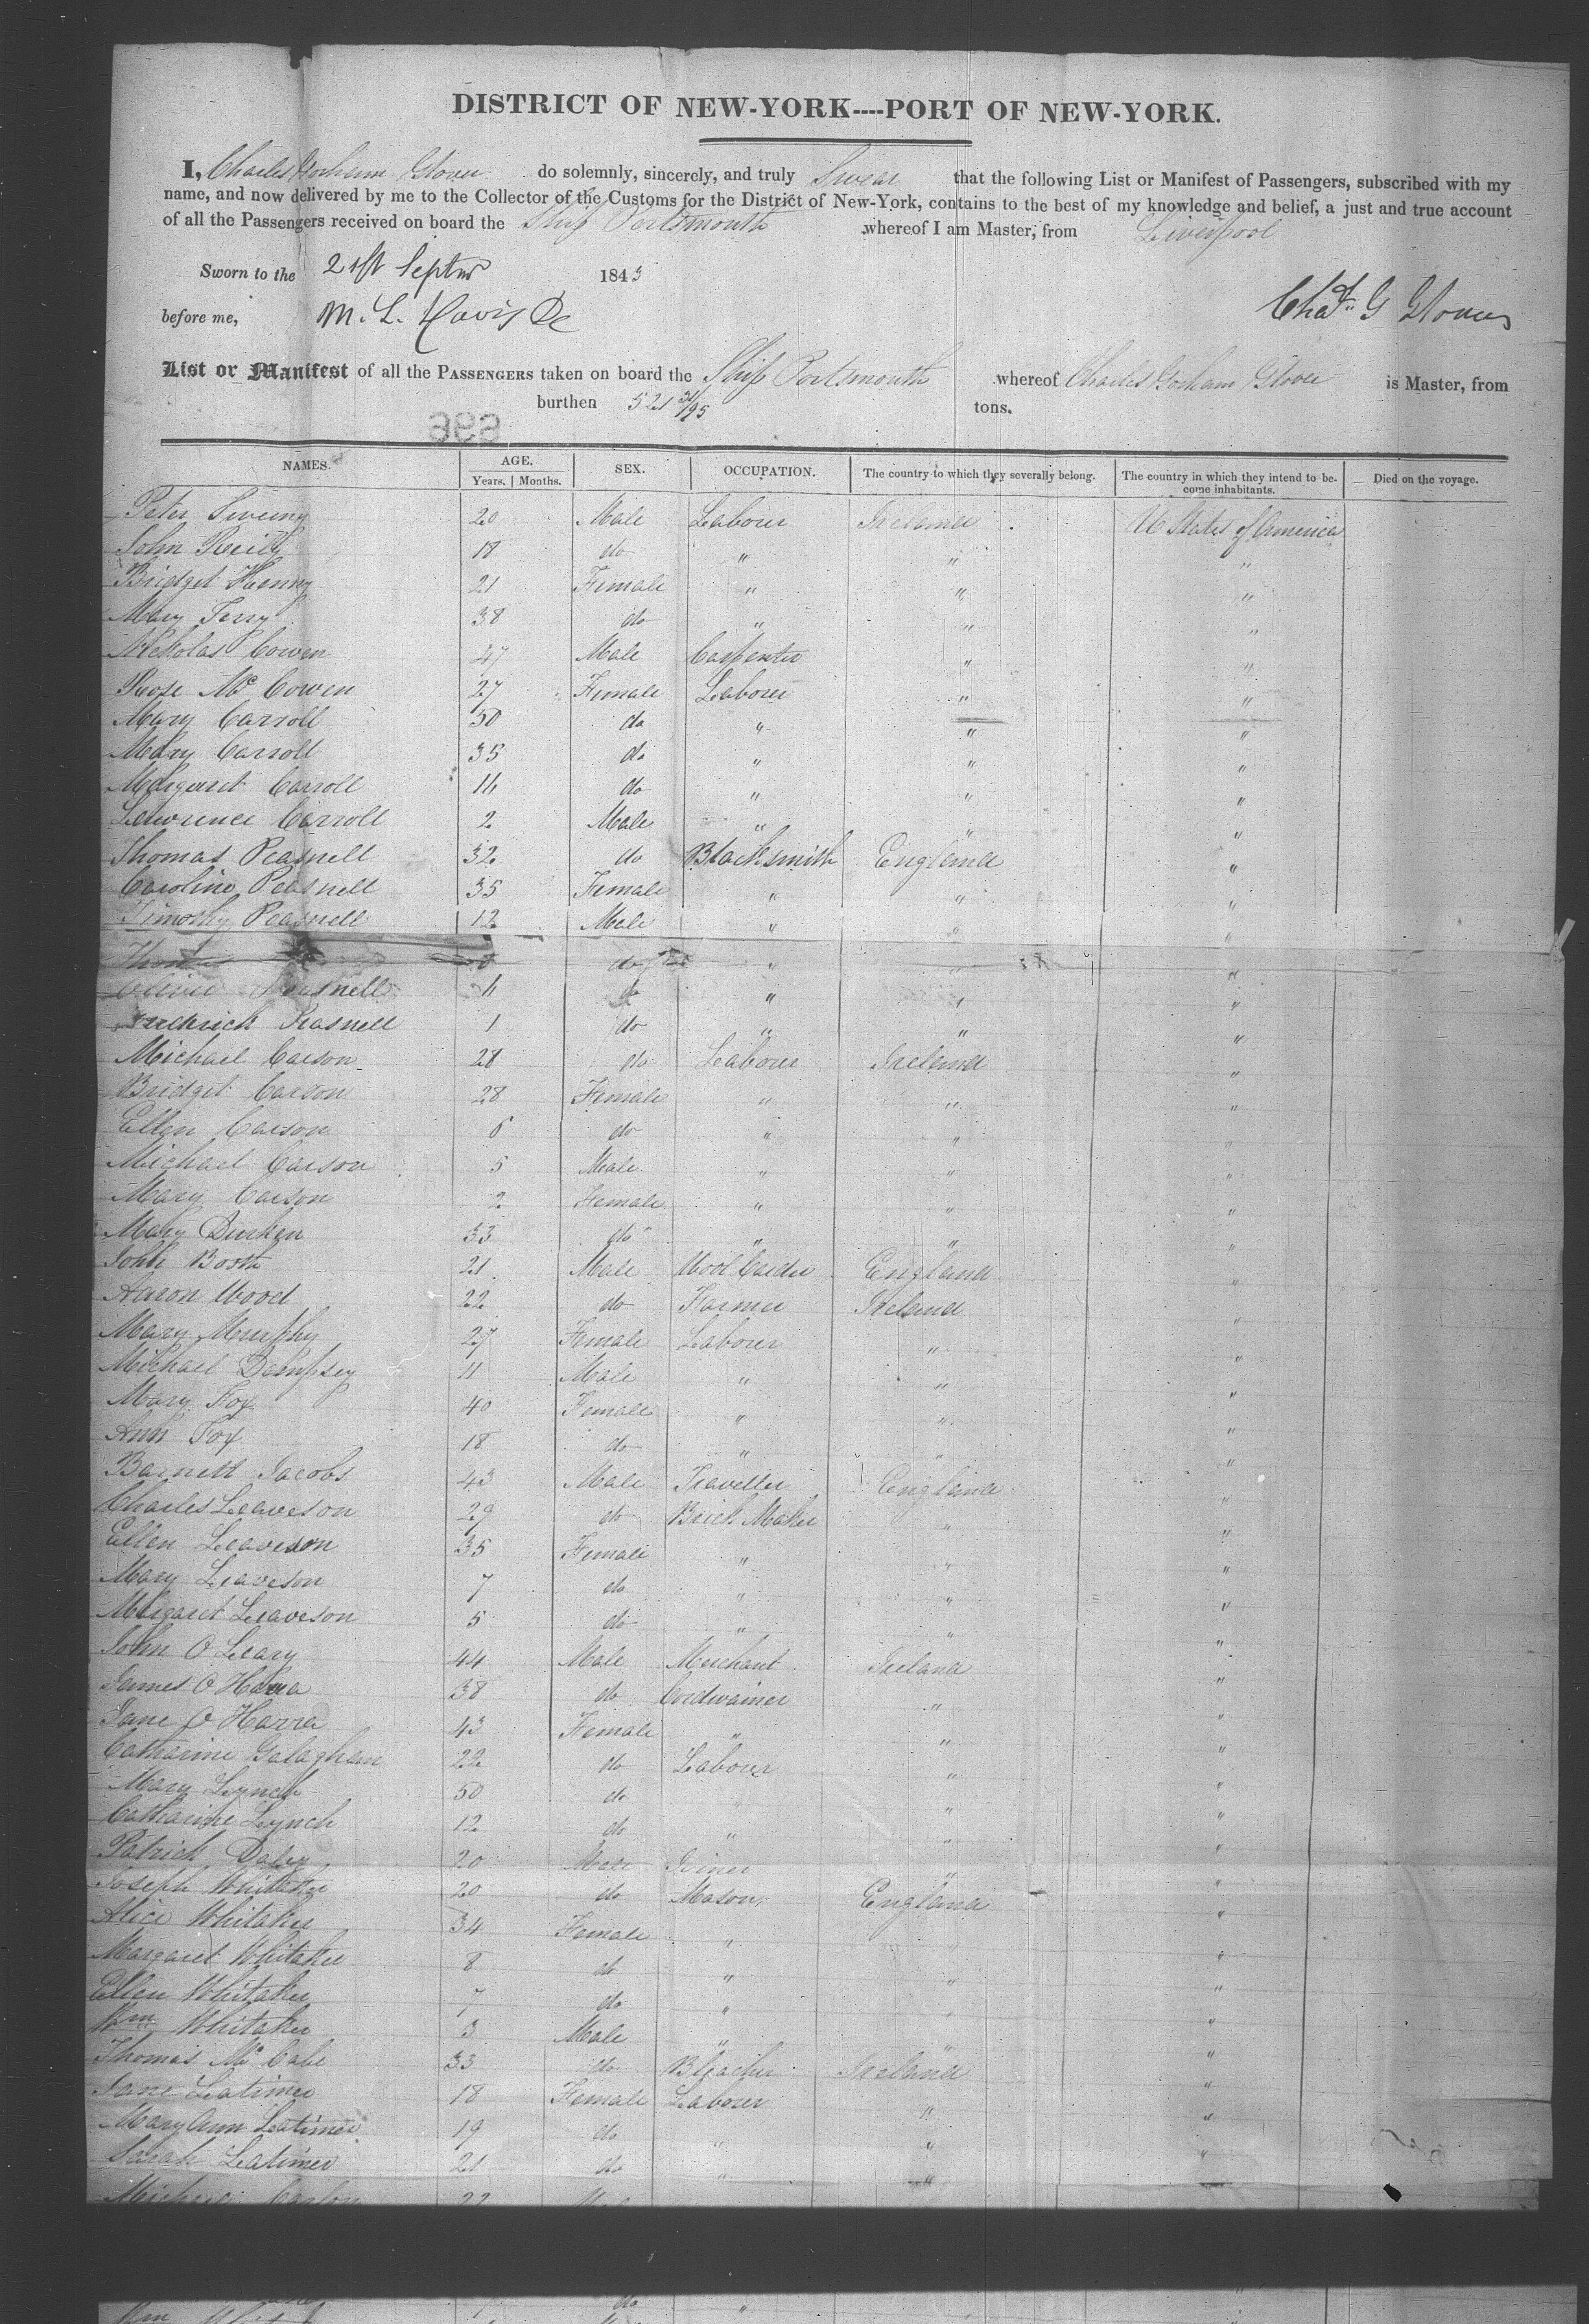 DISTRICT OF NEW-YORK----PORT OF NEW-YORK.
I, Charles Gorham Glover do solemnly, sincerely, and truly Swear that the following List or Manifest of Passengers, subscribed with my
name, and now delivered by me to the Collector of the Customs for the District of New-York, contains to the best of my knowledge and belief, a just and true account
of all the Passengers received on board the Ship Portsmouth whereof I am Master, from Liverpool
Sworn to the 21st Septmr 1843
before me, M. L. Davis Chas. G Glover
List or Manifest of all the PASSENGERS taken on board the Ship Portsmouth whereof Charles Gorham Glover is Master, from
burthen 521 /95 tons.
NAMES. AGE. SEX. OCCUPATION. The country to which they severally belong. The country in which they intend to be- Died on the voyage.
Years. Months. come inhabitants.
Peter Sweeny 20 Male Labourer Ireland U States of America
John Reily 18 do " " "
Bridget 21 Female " " "
Mary Terry 38 do " " "
Nicholas Cowen 47 Male Carpenter " "
Rose Mc Cowen 27 Female Labourer " "
Mary Carroll 50 do " " "
Mary Carroll 35 do " " "
Margaret Carroll 11 do " " "
Lawrence Carroll 2 Male " " "
Thomas Peasnell 32 do Blacksmith England "
Caroline Peasnell 35 Female " " "
Timothy Peasnell 12 Male " " "
do " " "
Peasnell " " "
Frederick Peasnell 1 do " " "
Michael Carson 28 do Labourer Ireland "
Bridget Carson 28 Female " " "
Ellen Carson do " "
Michael Carson 5 Male " " "
Mary Carson 2 Female " " "
Mary Durken 33 do " " "
John Booth 21 Male Wool Carder England "
Aaron Wood 22 do Farmer Ireland "
Mary Murphy 27 Female Labourer " "
Michael Dempsey 11 Male " " "
Mary Fox 40 Female " " "
Ann Fox 18 do " " "
Barnett Jacobs 43 Male Traveller England "
Charles Leaveson 29 do Brick Maker " "
Ellen Leaveson 35 Female " " "
Mary Leaveson 7 do " " "
Margaret Leaveson 5 do " " "
John O Leary 44 Male Merchant Ireland "
James O Harra 38 do Cordwainer " "
Jane O Harra 43 Female " " "
Catharine Galaghan 22 do Labourer " "
Mary Lynch 50 do " " "
Catharine Lynch 12 do " " "
Patrick Daley 20 Male Joiner " "
Joseph Whitaker 20 do Mason England "
Alice Whitaker 34 Female " " "
Margaret Whitaker 8 do " " "
Ellen Whitaker 7 do " " "
Wm Whitaker 3 Male " " "
Thomas Mc Cabe 33 do Bleacher Ireland "
Jane Latimer 18 Female Labourer " "
Mary Ann Latimer 19 do " " "
Sarah Latimer 21 do " "
22